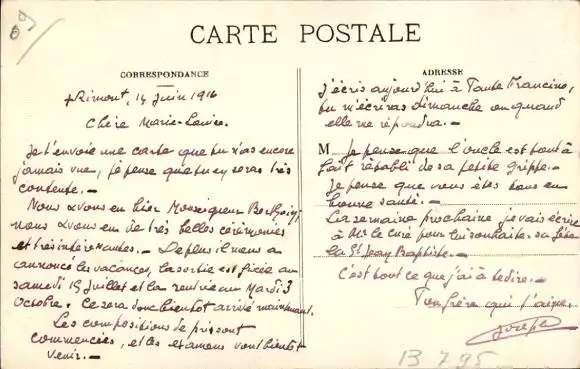 CARTE POSTALE
CORRESPONDANCE
+ Rimont, 14 Juin 1916
Chère Marie-Louise.
Je t'envoie une carte que tu n'as encore
jamais vue, je pense que tu en seras très
contente. –
Nous avons eu hier Monseigneur
nous avons eu de très belles cérémonies
et très intéressantes. – De plus il nous a
annoncé les vacances, la sortie est fixée au
samedi 15 Juillet et la rentrée au Mardi 3
Octobre. Ce sera donc bientôt arrivé maintenant.
Les compositions de prix sont
commencées, et les examens vont bientôt
venir. –
ADRESSE
J'écris aujourd'hui à Tante Francine,
tu m'écriras Dimanche ou quand
elle me répondra. –
M. Je pense que l'oncle est tout à
fait rétabli de sa petite grippe. –
Je pense que vous êtes tous en
bonne santé. –
La semaine prochaine je vais écrire
à Mr le Curé pour lui souhaiter sa fête
la St Jean Baptiste. –
C'est tout ce que j'ai à te dire. –
Ton frère qui t'aime.
Joseph
B 795